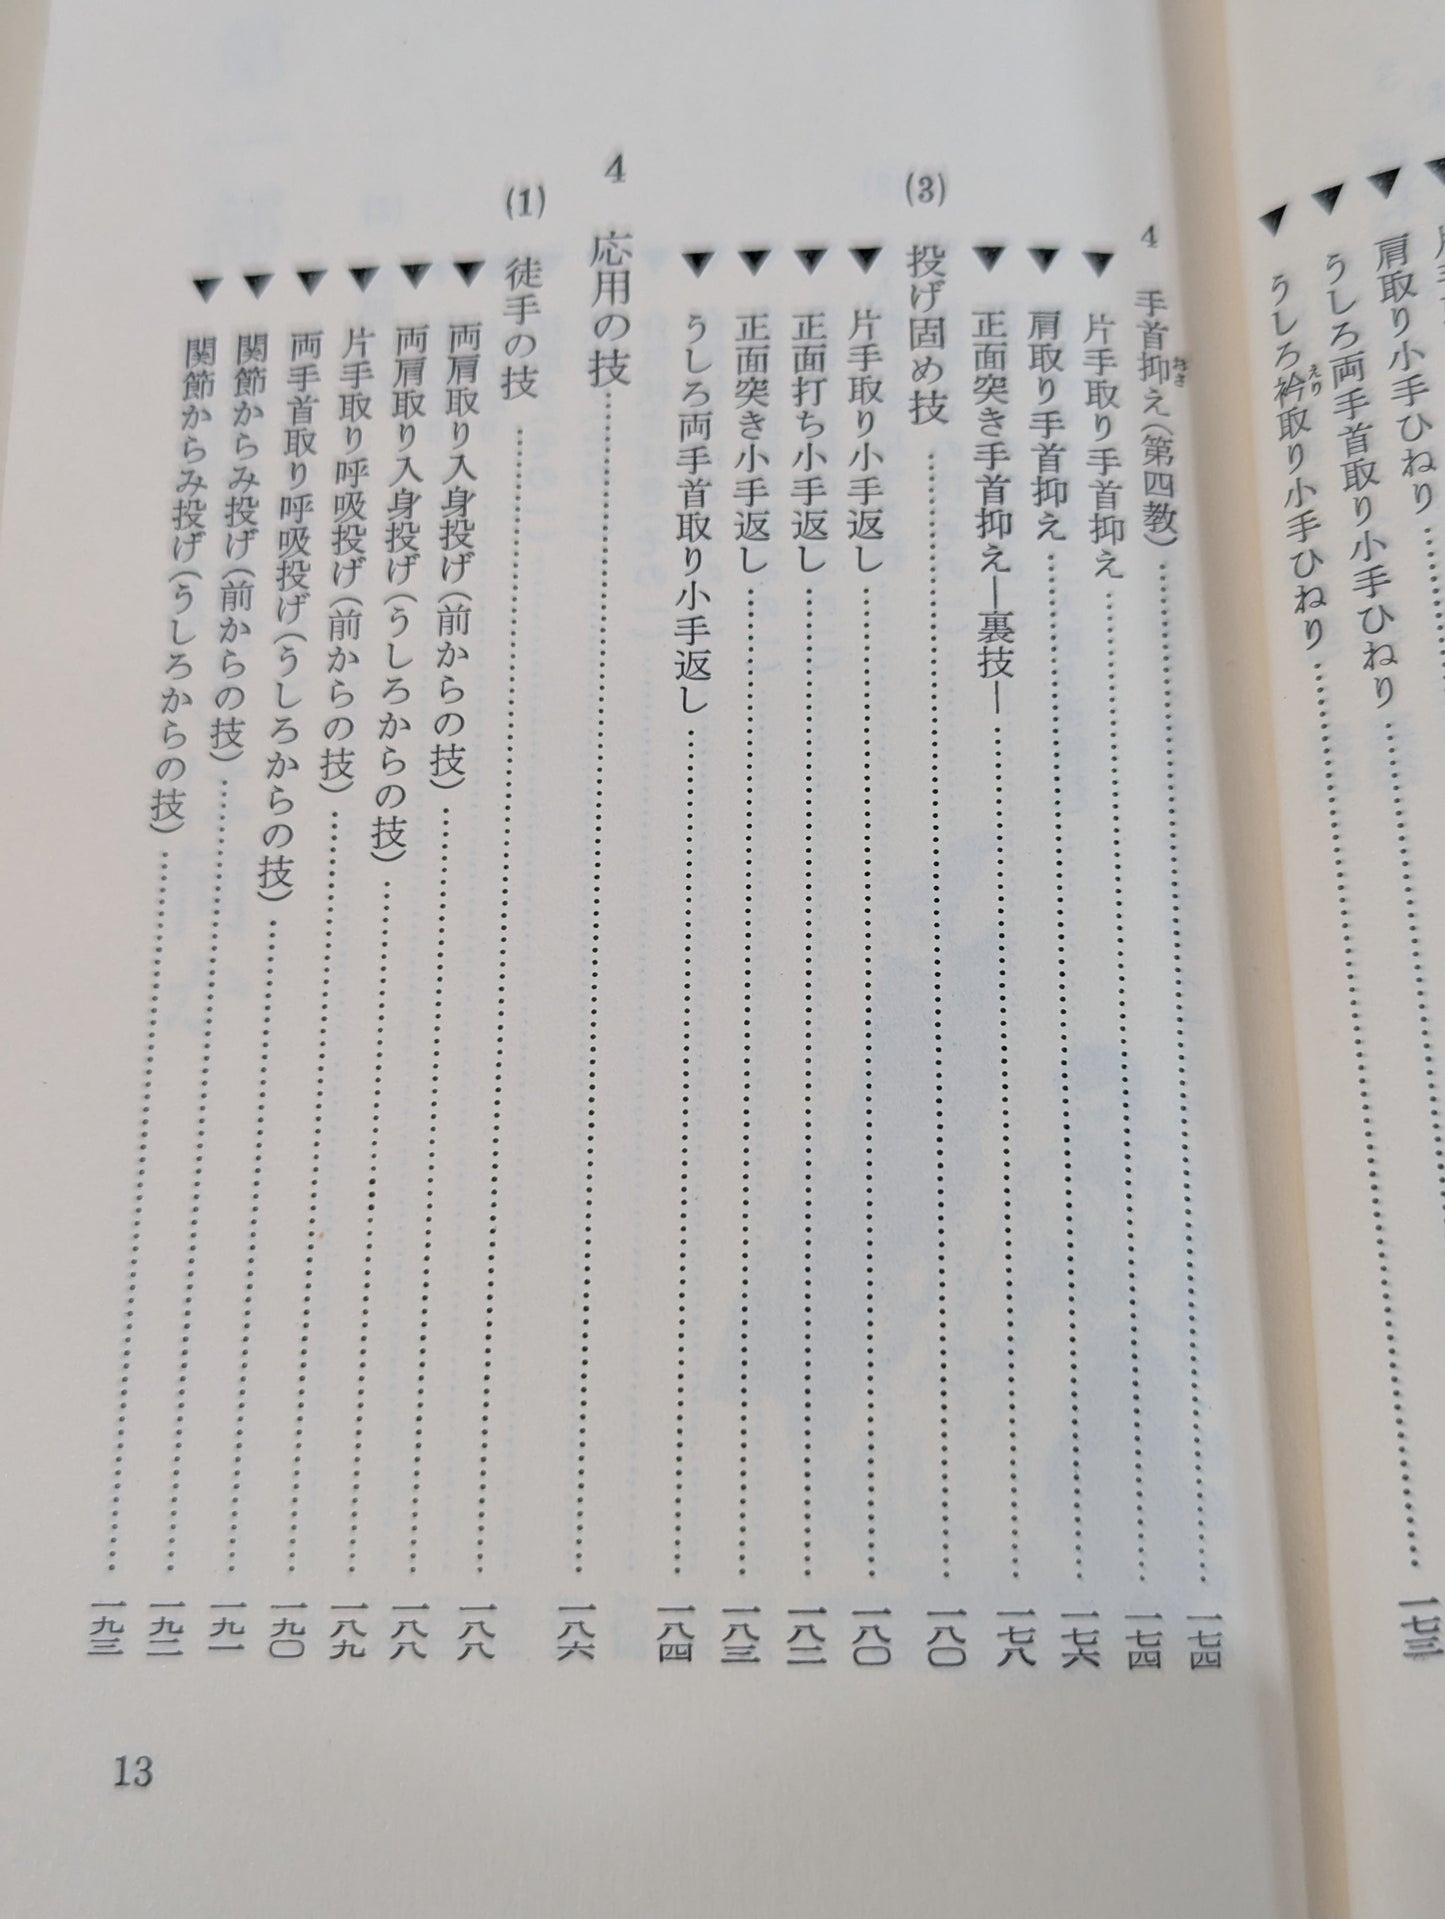 ▼肩取り小手ひねり
▼うしろ両手首取り小手ひねり
▼うしろ衿取り小手ひねり……一七三
えり
4 手首抑え(第四教)……一七四
おさ
▼片手取り手首抑え……一七四
▼肩取り手首抑え……一七六
▼正面突き手首抑え―裏技―……一七八
(3) 投げ固め技……一八〇
▼片手取り小手返し……一八〇
▼正面打ち小手返し……一八二
▼正面突き小手返し……一八三
▼うしろ両手首取り小手返し……一八四
4 応用の技……一八六
(1) 徒手の技……一八八
▼両肩取り入身投げ(前からの技)……一八八
▼両肩取り入身投げ(うしろからの技)……一八九
▼片手取り呼吸投げ(前からの技)……一九〇
▼両手首取り呼吸投げ(うしろからの技)……一九一
▼関節からみ投げ(前からの技)……一九二
▼関節からみ投げ(うしろからの技)……一九三
13